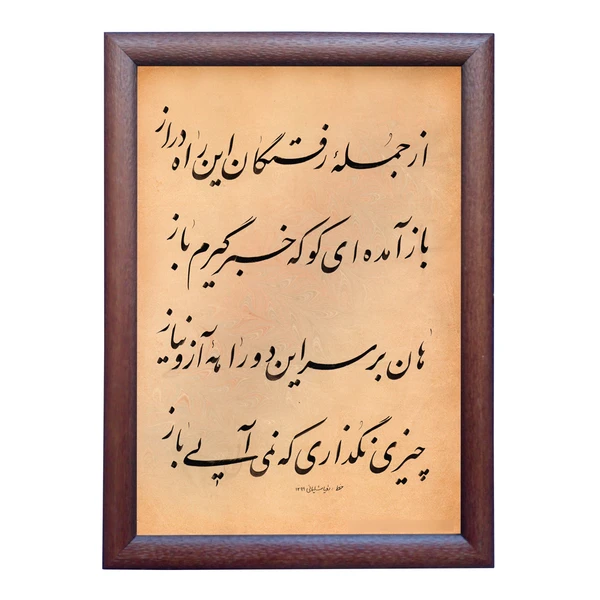 از جملهٔ رفتگان این راه دراز
باز آمده ای کو که خبر گیرم باز
هان بر سر این دو راههٔ آز و نیاز
چیزی نگذاری که نمی آیی باز
خط : ۱۳۹۹